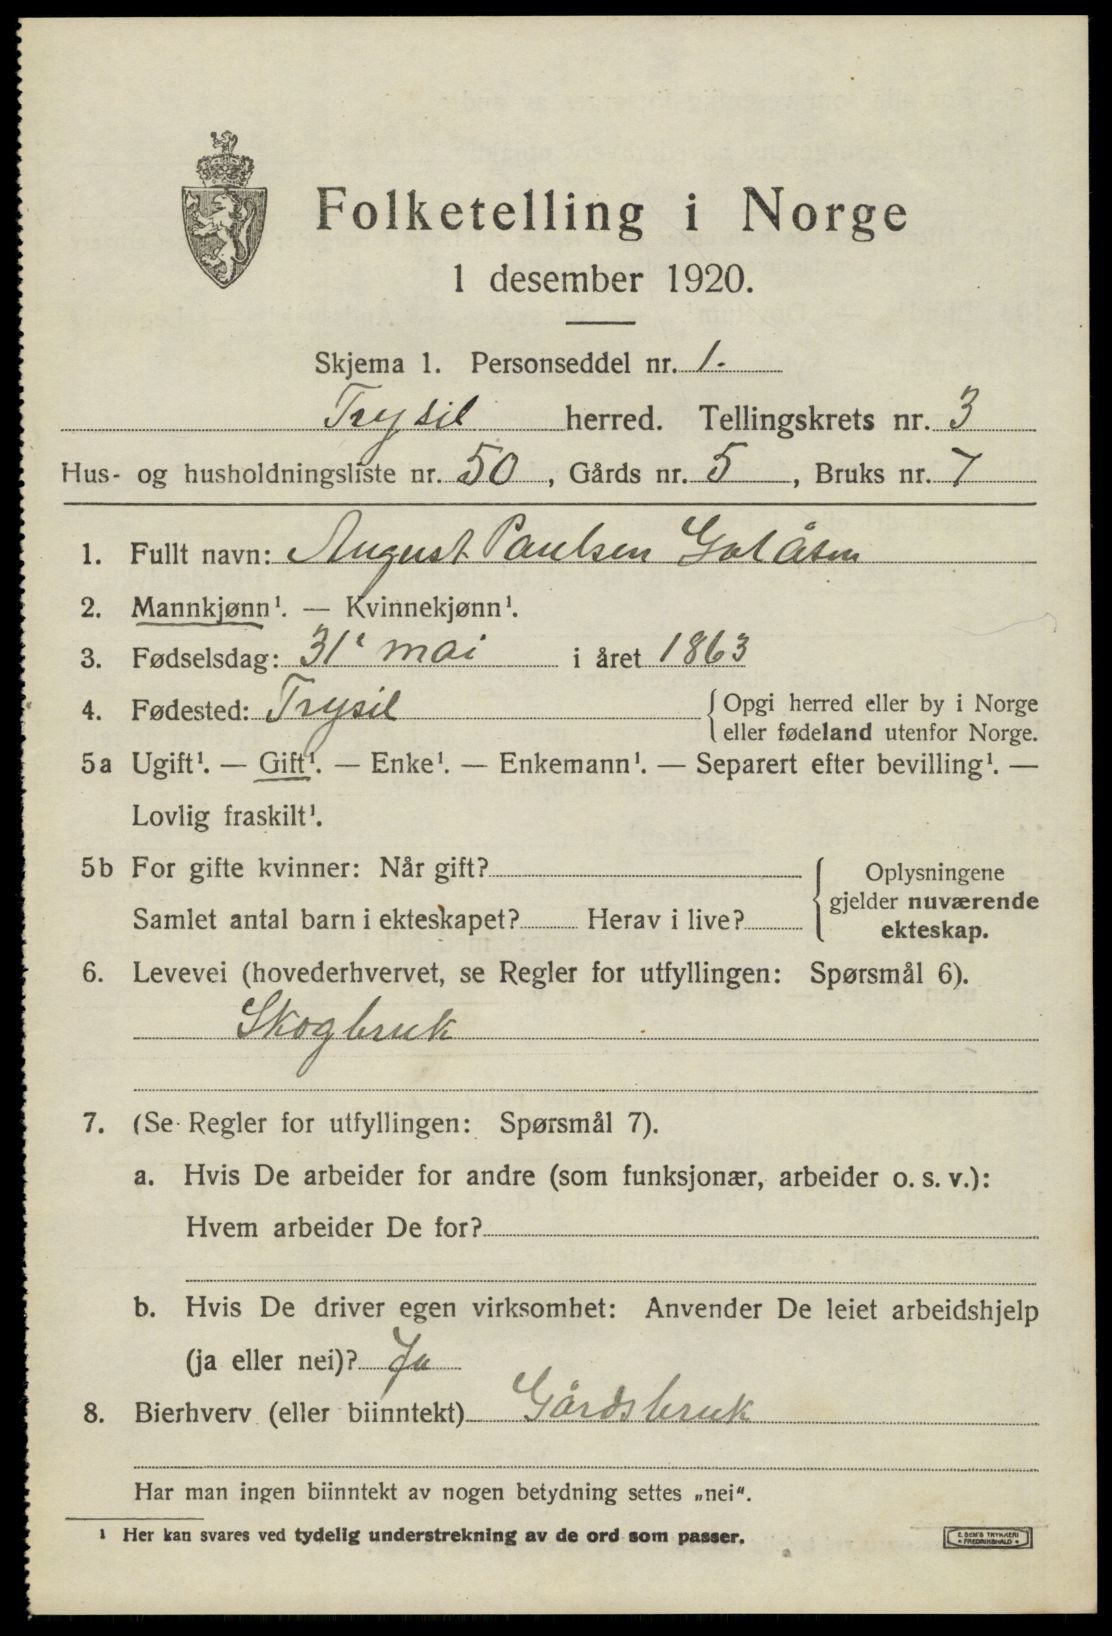 Folketelling i Norge
1 desember 1920.
Skjema 1. Personseddel nr. 1.
Trysil herred. Tellingskrets nr. 3
Hus- og husholdningsliste nr. 50, Gårds nr. 5, Bruks nr. 7
1. Fullt navn: August Paulsen Galåsen
2. Mannkjønn¹. — Kvinnekjønn¹.
3. Fødselsdag: 31' mai i året 1863
4. Fødested: Trysil { Opgi herred eller by i Norge
eller fødeland utenfor Norge.
5a Ugift¹. — Gift¹. — Enke¹. — Enkemann¹. — Separert efter bevilling¹. —
Lovlig fraskilt¹.
5b For gifte kvinner: Når gift? { Oplysningene
gjelder nuværende
Samlet antal barn i ekteskapet? Herav i live?
ekteskap.
6. Levevei (hovederhvervet, se Regler for utfyllingen: Spørsmål 6).
Skogbruk
7. (Se Regler for utfyllingen: Spørsmål 7).
a. Hvis De arbeider for andre (som funksjonær, arbeider o. s. v.):
Hvem arbeider De for?
b. Hvis De driver egen virksomhet: Anvender De leiet arbeidshjelp
(ja eller nei)? Ja
8. Bierhverv (eller biinntekt) Gårdsbruk
Har man ingen biinntekt av nogen betydning settes „nei".
¹ Her kan svares ved tydelig understrekning av de ord som passer.
E. SEM'S TRYKKERI
FREDRIKSHALD